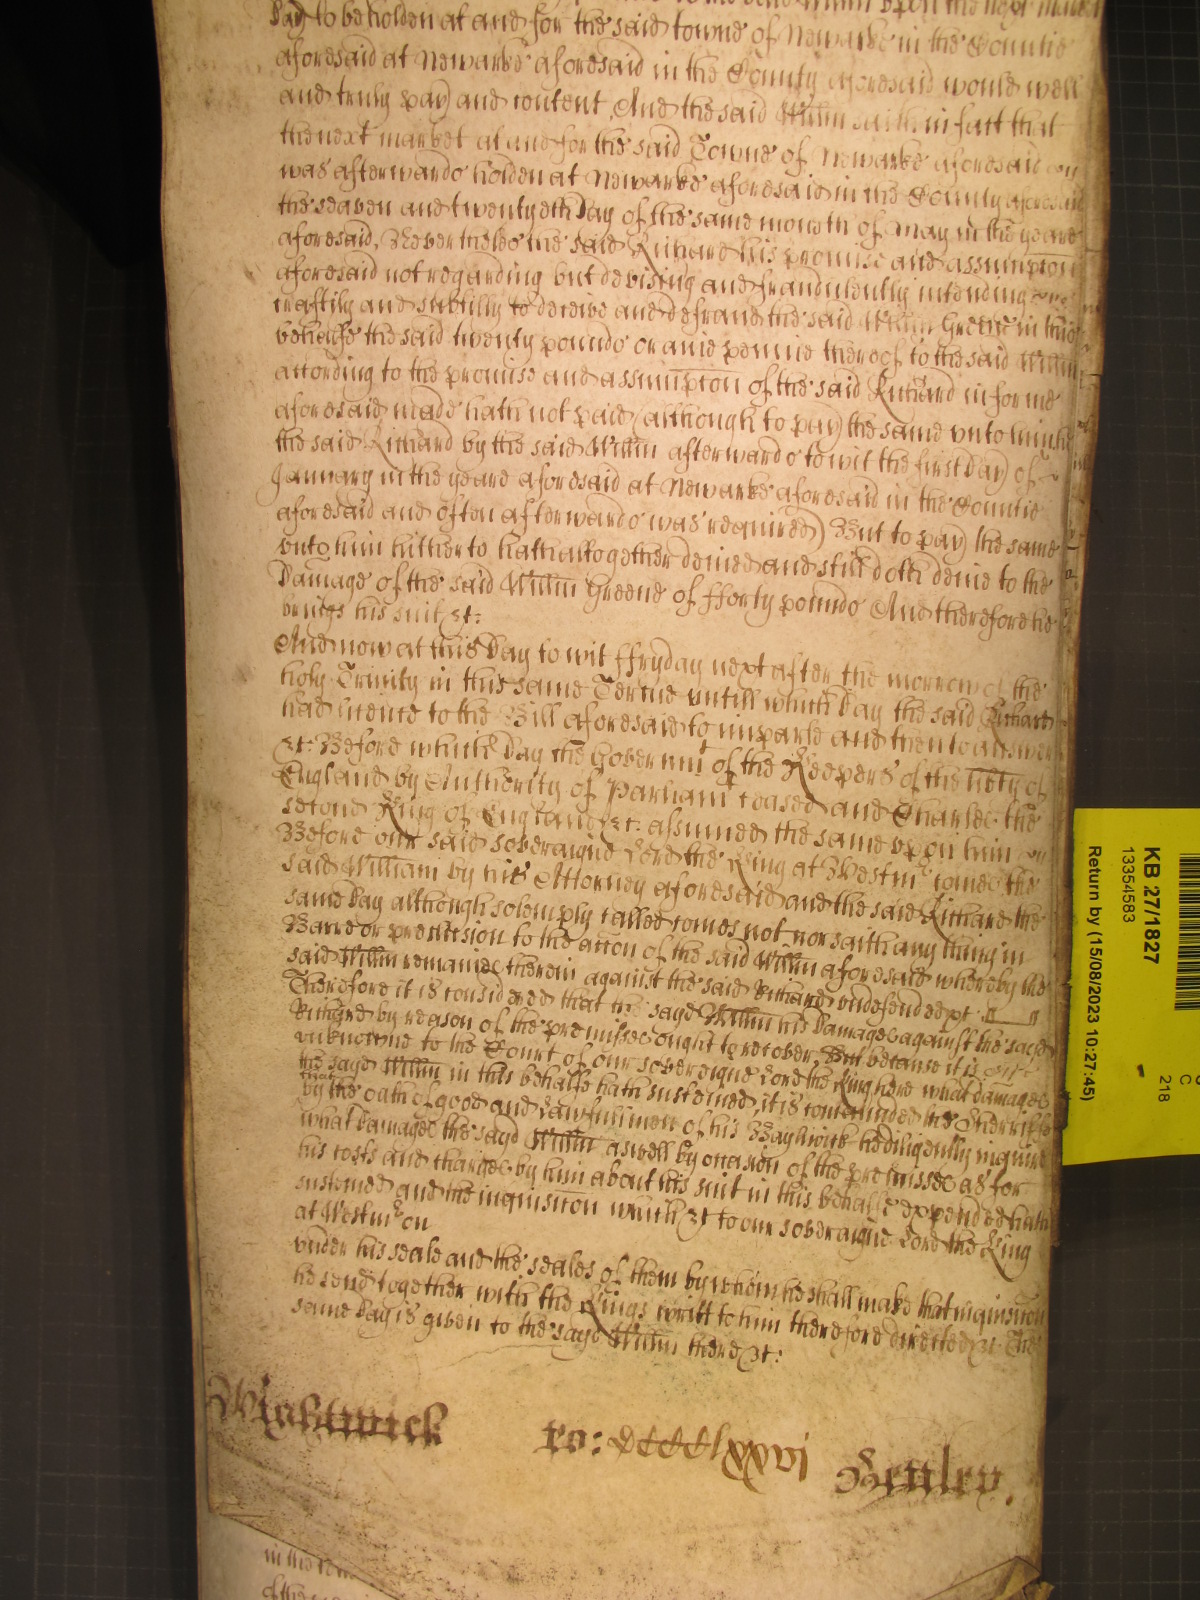 Day to be holden at and for the said towne of Newarke in the Countie
aforesaid at Newarke aforesaid in the County aforesaid would well
and truly pay and content, And the said Willm saith in fact that
the next market at and for the said Towne of Newarke aforesaid
was afterwards holden at Newarke aforesaid in the County aforesaid
the seaven and twentyeth Day of the same month of May in the yeare
aforesaid, Neverthelesse the said Richard his promise and assumption
aforesaid not regarding but devising and fraudulently intending
craftily and subtilly to deceive and defraud the said Willm Greene in this
behalfe the said twenty pounds or anie pennie thereof to the said Willm
according to the promise and assumption of the said Richard in forme
aforesaid made hath not paid (although to pay the same unto him
the said Richard by the said Willm afterwards to wit the first Day of
January in the yeare aforesaid at Newarke aforesaid in the Countie
aforesaid and often afterwards was required) But to pay the same
unto him hitherto hath altogether denied and still doth denie to the
Damage of the said Willm Greene of fforty pounds And therefore he
brings his suit &c:
And now at this Day to wit ffryday next after the morrow of the
holy Trinity in this same Terme untill which Day the said Richard
had licence to the Bill aforesaid to imparle and then to answer
&c: Before which Day the Governmt of the Keepers of the libty of
England by Authority of Parliamt ceased and Charles the
second King of England &c: assumed the same upon him
Before our said soveraigne Lord the King at Westmr comes the
said William by his Attorney aforesaid and the said Richard the
same day although solemply called comes not nor saith any thing in
Barre or preclusion to the accon of the said Willm aforesaid whereby the
said Willm remaines therein against the said Richard undefended
Therefore it is considered that the sayd Willm his Damages against the sayd
Richard by reason of the premisses ought to recover, But because it is
unknowne to the Court of our soveraigne Lord the King here what damages
the sayd Willm in this behalfe hath susteined, it is comanded the Sherriffe
that
by the oath of good and lawfull men of his Baylywick he diligently inquire
what Damages the sayd Willm aswell by occasion of the premisses as for
his costs and charges by him about his suit in this behalfe expended hath
susteined and the inquisicon which &c to our soveraigne Lord the King
at Westmr on
under his seale and the seales of them by whom he shall make that inquisicon
he send together with the Kings writt to him therefore directed &c The
same Day is given to the sayd Willm there &c:
Wightwick ro: CCCClxxvi Henley.
KB 27/1827
13354583
Return by (15/08/2023 10:27:45)
C
218